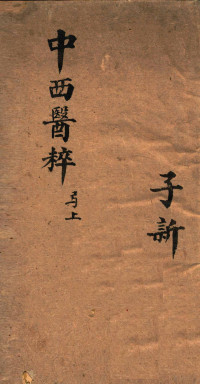 子新
中西醫粹
弓上